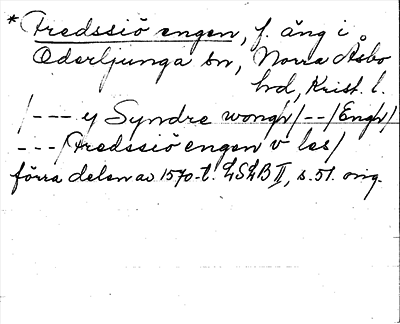 * Fredssiö engen, f. äng i
Oderljunga sn, Norra Åsbo
hd, Krist. l.
/--- y Syndre wongh/--/Engh/
---/Fredssiö engen v les/
förra delen av 1570-t. LSLB II, s. 51. orig.